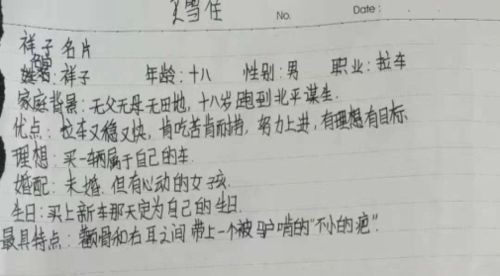 雪佳
No.
Date:
祥子名片
姓名:祥子 年龄:十八 性别:男 职业:拉车
家庭背景:无父无母无田地,十八岁跑到北平谋生.
优点:拉车又稳又快,肯吃苦肯耐耕,努力上进,有理想有目标.
理想:买一辆属于自己的车.
婚配:未婚.但有心动的女孩.
生日:买上新车那天定为自己的生日.
最具特点:颧骨和右耳之间带上一个被驴啃的"不小的疤".